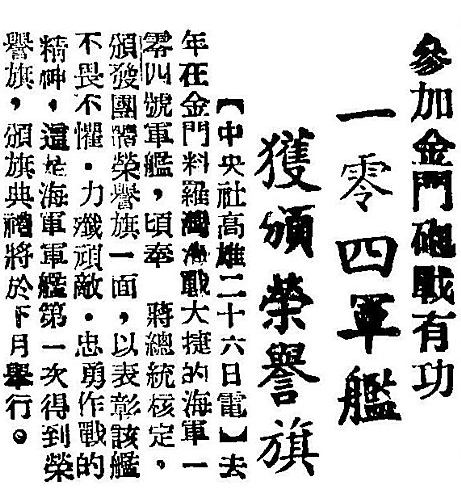 參加金門砲戰有功
一零四軍艦
獲頒榮譽旗
【中央社高雄二十六日電】去
年在金門料羅灣海戰大捷的海軍一
零四號軍艦，頃奉　蔣總統核定，
頒發團體榮譽旗一面，以表彰該艦
不畏不懼．力殲頑敵．忠勇作戰的
精神，這是海軍軍艦第一次得到榮
譽旗，頒旗典禮將於下月舉行。